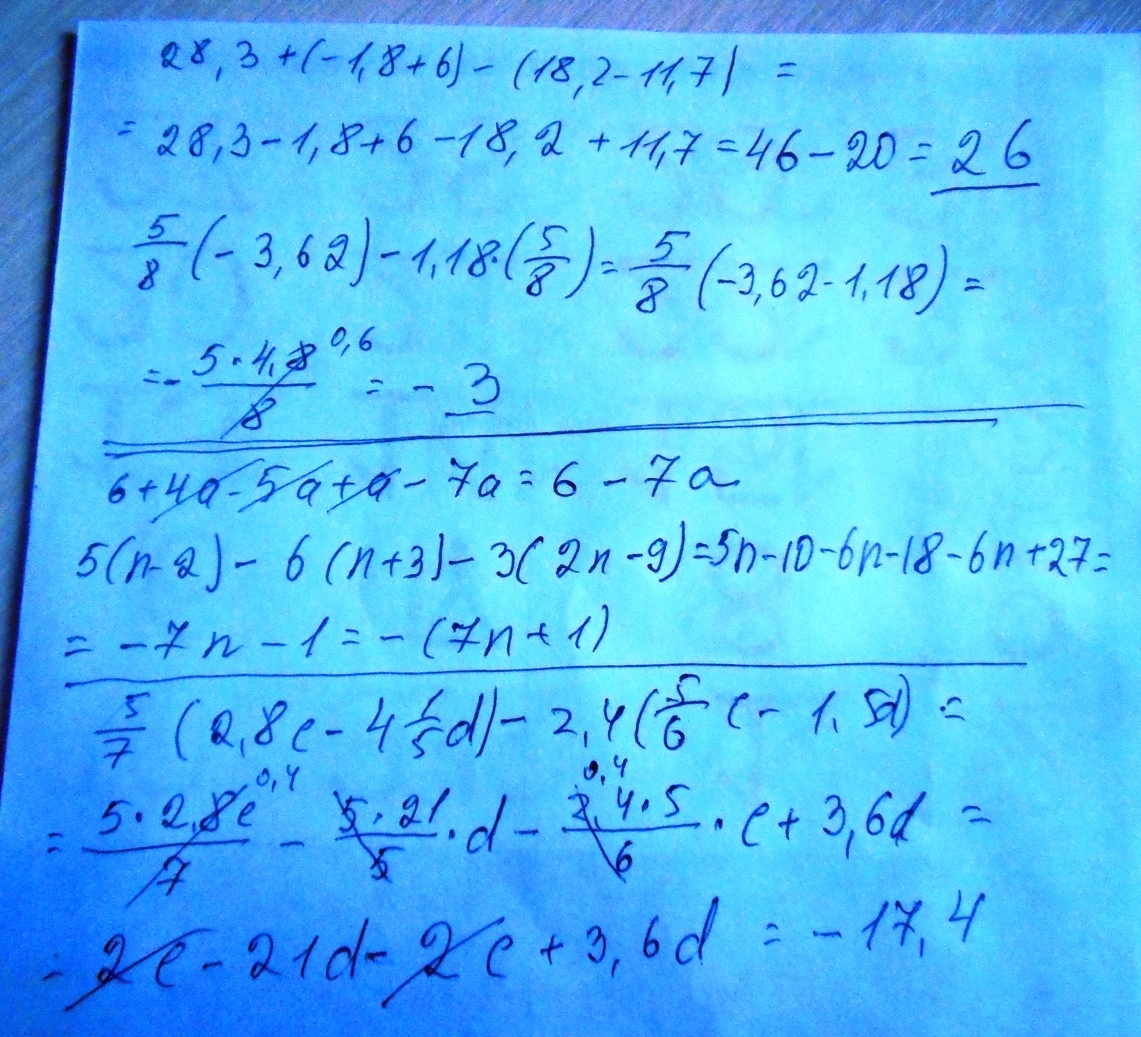 28,3 + (-1,8 + 6) - (18,2 - 11,7) =
= 28,3 - 1,8 + 6 - 18,2 + 11,7 = 46 - 20 = 26
5/8 (- 3,62) - 1,18·(5/8) = 5/8 (-3,62 - 1,18) =
= - 5·4,8 0,6 / 8 = - 3
6 + 4a - 5a + a - 7a = 6 - 7a
5(n-2) - 6(n+3) - 3(2n-9) = 5n - 10 - 6n - 18 - 6n + 27 =
= -7n - 1 = -(7n + 1)
5/7 (2,8c - 4 1/5 d) - 2,4 (5/6 c - 1,5d) =
= 5·2,8c 0,4 / 7 - 5·21/5 · d - 0,4 2,4·5/6 · c + 3,6d =
= 2c - 21d - 2c + 3,6d = -17,4